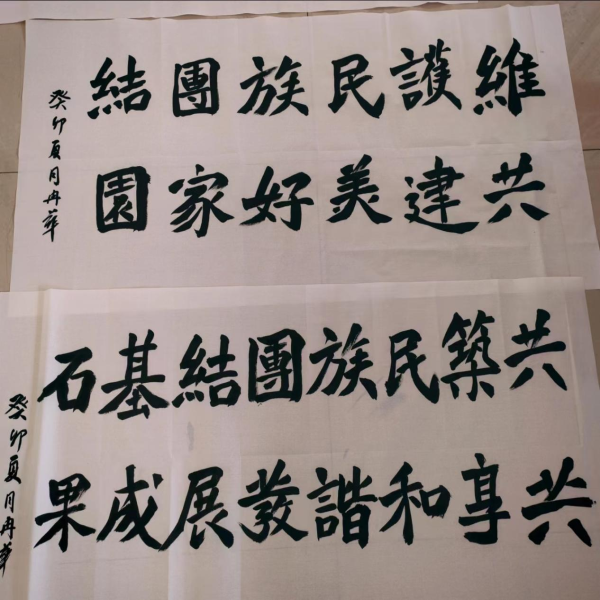 維護民族團結
共建美好家園
癸卯夏月冉華
共築民族團結基石
共享和諧發展成果
癸卯夏月冉華